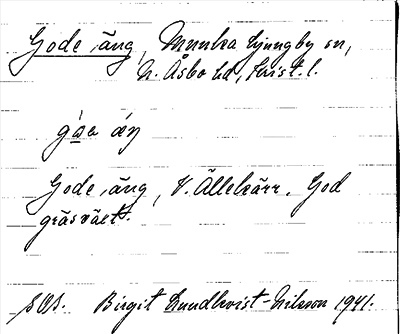 Gode äng, Munka Ljungby sn,
N. Åsbo hd, Krist. l.
Gode äng, V. Ällekärr. God
gräsväxt.
Birgit Lundkvist-Nilsson 1941.